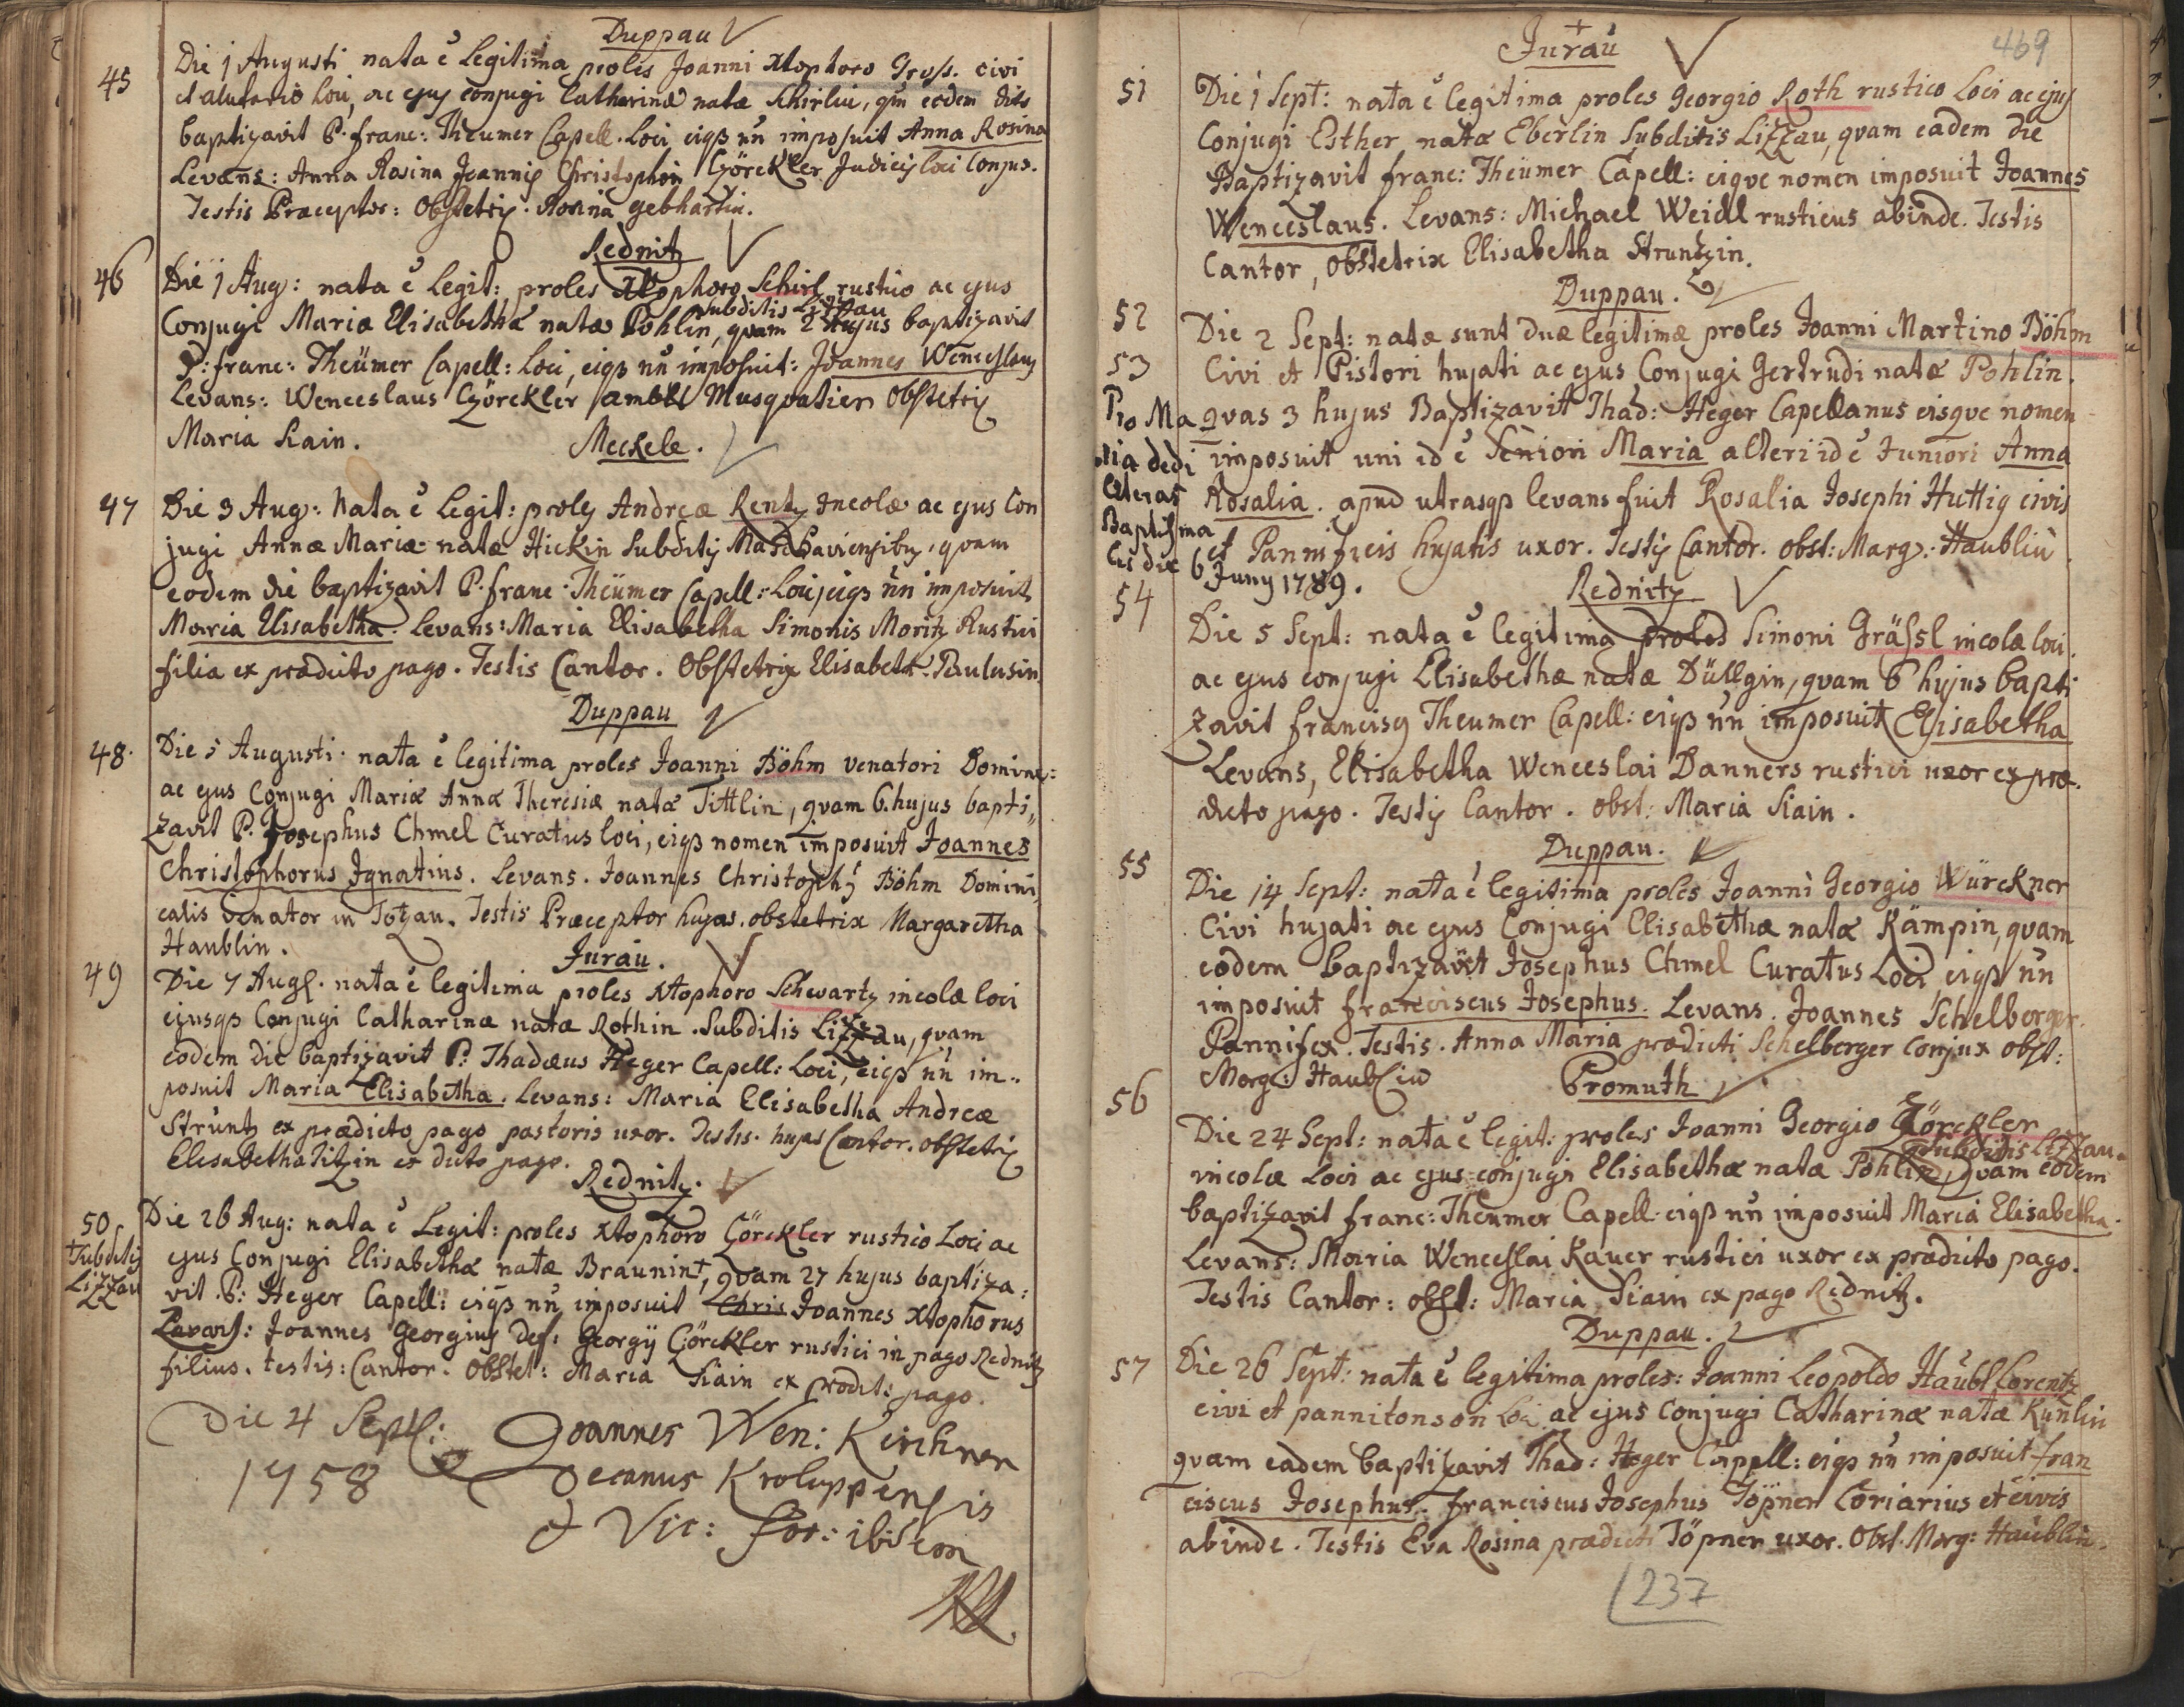 Duppau
45
Die 1 Augusti nata ē legitima proles Joanni Xtophoro Gross. civi
et alutario loci, ac ejus conjugi Catharinæ natæ Schirlin, qm eodem die
baptizavit P. franc: Theumer Capell. Loci eiqß nn imposuit Anna Rosina
Levans: Anna Rosina Joannis Christophori Görckler Judicis loci Conjux.
Testis Præceptor: Obstetrix Rosina gebhartin.
Rednitz
46
Die 1 Aug: nata ē legit: proles Xtophoro Schirl rustico ac ejus
subditis Lizzau
Conjugi Maria Elisabetha natæ Pohlin, quam 2 hujus baptizavit
P: franc: Theümer Capell: Loci, eiqß nn imposuit: Joannes Wenceslaus
Levans: Wenceslaus Görckler Musquatier Obstetrix
Maria Siain.
Meckele.
47
Die 3 Aug: Nata ē Legit: proles Andreæ Rentz Incolæ ac ejus Con
jugi Annæ Mariæ natæ Hickin Subditis, quam
eodem die baptizavit P. franc: Theümer Capell: Loci, eiqß nn imposuit
Maria Elisabetha. Levans: Maria Elisabetha Simonis Moritz Rustici
filia ex prædicto pago. Testis Cantor. Obstetrix Elisabeth. Paulusin
Duppau
48.
Die 5 Augusti nata ē legitima proles Joanni Böhm venatori Domina:
ac ejus Conjugi Mariæ Annæ Theresiæ natæ Tittlin, qvam 6. hujus bapti„
zavit P. Josephus Chmel Curatus loci, eiqß nomen imposuit Joannes
Christophorus Ignatius. Levans. Joannes Christophg Böhm Domini„
calis venator in Totzau. Testis Præceptor hujas. obstetrix Margaretha
Haublin.
Jurau.
49
Die 7 Aug. nata ē legitima proles Xtophoro Schwartz incolæ loci
ejusqß Conjugi Catharinæ natæ Rothin. Subditis Lizzau, qvam
eodem die baptizavit P. Thadæus Heger Capell: Loci, eiqß nn im„
posuit Maria Elisabetha. Levans: Maria Elisabetha Andreæ
Strüntz ex prædicto pago pastoris uxor. Testis. hujas Cantor. obstetrix
Elisabetha Titzin ex dicto pago.
Rednitz.
50
†Subditis
Lizzau
Die 26 Aug: nata ē Legit: proles Xtophoro Görckler rustico Loci ac
ejus Conjugi Elisabethæ natæ Braunin†, qvam 27 hujus baptiza:
vit. P: Heger Capell: eiqß nn imposuit Chris Joannes Xtophorus
Levans: Joannes Georgius def: Georgÿ Görckler rustici in pago Rednitz
filius. testis: Cantor. Obstet: Maria Siain ex prædicto pago.
Die 4 Sept: Joannes Wen: Kirchner
1758 Decanus Kroluppensis
et Vic: for: ibidem
469
Jurau
51
Die 1 Sept: nata ē legitima proles Georgio Roth rustico Loci ac ejus
Conjugi Esther natæ Eberlin Subditis Lizzau, qvam eadem die
Baptizavit franc: Theümer Capell: eiqve nomen imposuit Joannes
Wenceslaus. Levans: Michael Weidl rusticus abinde. Testis
Cantor, Obstetrix Elisabetha Struntzin.
Duppau.
52
53
Die 2 Sept: natæ sunt duæ legitimæ proles Joanni Martino Böhm
Civi et Pistori hujati ac ejus Conjugi Gertrudi natæ Pohlin.
qvas 3 hujus Baptizavit Thad: Heger Capellanus eisqve nomen
imposuit uni id ē Seniori Maria alteri id ē Juniori Anna
Rosalia. apud utrasqß levans fuit Rosalia Josephi Huttig civis
et Pannificis hujatis uxor. Testis Cantor. obst: Marg: Haublin
Pro Ma
ria dedi
Literas
Baptisma
les die 6
Juny 1789.
Rednitz
54
Die 5 Sept: nata ē legitima proles Simoni Gräßl incolæ loci.
ac ejus conjugi Elisabethæ natæ Düllgin, qvam 6 hujus bapti
zavit francisg Theumer Capell: eiqß nn imposuit Elisabetha
Levans, Elisabetha Wenceslai Danners rustici uxor ex præ.
dicto pago. Testis Cantor. obst: Maria Siain.
Duppau.
55
Die 14 Sept: nata ē legitima proles Joanni Georgio Würckner
Civi hujati ac ejus Conjugi Elisabethæ natæ Kämpin, qvam
eodem baptizavit Josephus Chmel Curatus Loci, eiqß nn
imposuit franciscus Josephus. Levans. Joannes Schelberger
Pannifex. Testis. Anna Maria prædicti Schelberger Conjux obst:
Marg: Haublin
Promuth
56
Die 24 Sept: nata ē legit: proles Joanni Georgio Görckler
subditis Lizzau.
incolæ Loci ac ejus conjugi Elisabethæ natæ Pohlin, qvam eodem
baptizavit franc: Theumer Capell: eiqß nn imposuit Maria Elisabetha.
Levans: Maria Wenceslai Kauer rustici uxor ex prædicto pago.
Testis Cantor: obst: Maria Siain ex pago Rednitz.
Duppau.
57
Die 26 Sept: nata ē legitima proles: Joanni Leopoldo Haubl Lorentz
civi et pannitonsori Loci ac ejus Conjugi Catharinæ natæ Kunlin
qvam eadem baptizavit Thad: Heger Capell: eiqß nn imposuit fran
ciscus Josephus. franciscus Josephus Töpner Coriarius et civis
abinde. Testis Eva Rosina prædicti Töpner uxor. Obst. Marg: Haublin.
237